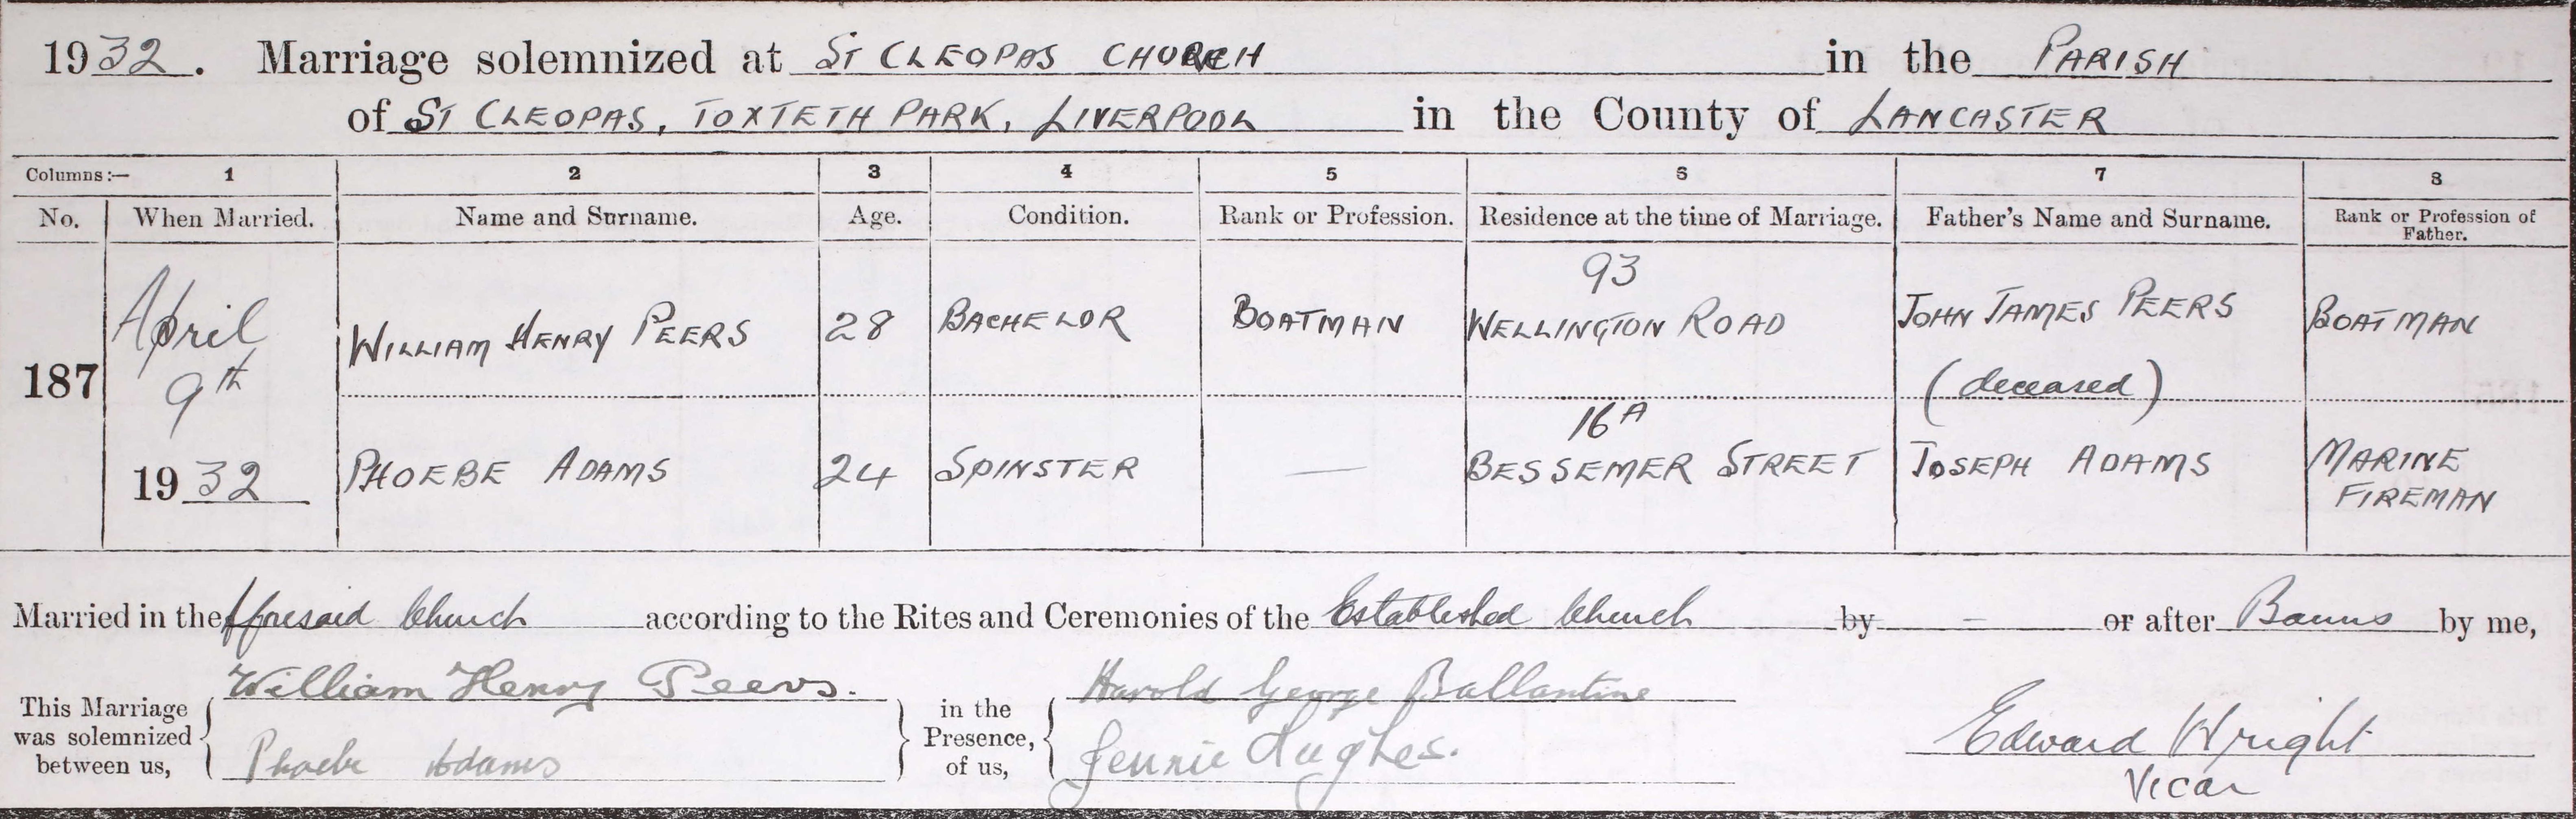 1932. Marriage solemnized at St CLEOPAS CHURCH in the PARISH
of St CLEOPAS, TOXTETH PARK, LIVERPOOL in the County of LANCASTER
Columns:— 1 2 3 4 5 6 7 8
No. When Married. Name and Surname. Age. Condition. Rank or Profession. Residence at the time of Marriage. Father's Name and Surname. Rank or Profession of Father.
187 April 9th 1932
WILLIAM HENRY PEERS 28 BACHELOR BOATMAN 93 WELLINGTON ROAD JOHN JAMES PEERS (deceased) BOATMAN
PHOEBE ADAMS 24 SPINSTER — 16A BESSEMER STREET JOSEPH ADAMS MARINE FIREMAN
Married in the Aforesaid Church according to the Rites and Ceremonies of the Established Church by — or after Banns by me,
This Marriage was solemnized between us, { William Henry Peers. Phoebe Adams } in the Presence, of us, { Harold George Ballantine Jennie Hughes.
Edward Wright
Vicar